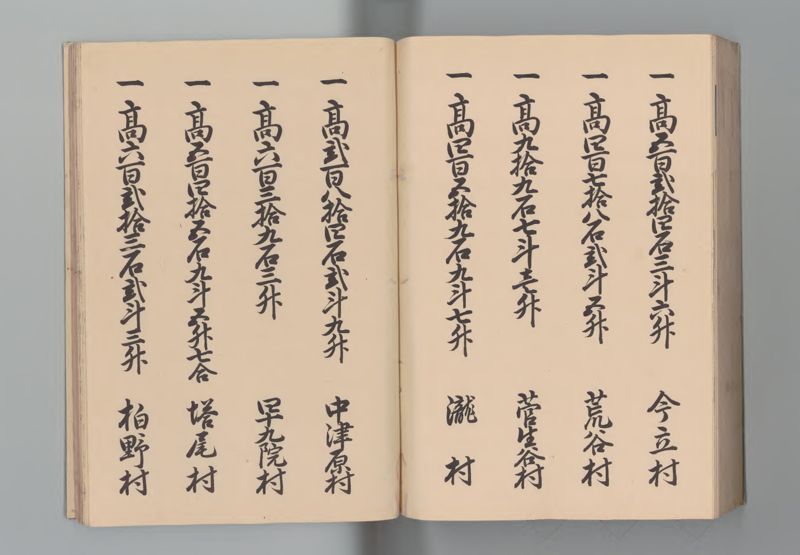 一 高五百弐拾四石三斗六升 今立村
一 高四百七拾八石弐斗五升 荒谷村
一 高九拾九石七斗壱升 菅生谷村
一 高四百五拾九石九斗七升 瀧村
一 高弐百八拾四石弐斗九升 中津原村
一 高六百三拾九石三升 四十九院村
一 高五百四拾五石九斗五升七合 塔尾村
一 高六百弐拾三石弐斗三升 柏野村